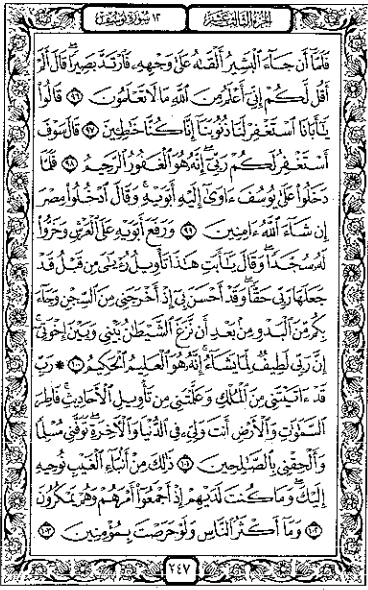 الجزء الثالث عشر
١٢ سورة يوسف
فَلَمَّآ أَن جَآءَ ٱلْبَشِيرُ أَلْقَىٰهُ عَلَىٰ وَجْهِهِۦ فَٱرْتَدَّ بَصِيرًا ۖ قَالَ أَلَمْ
أَقُل لَّكُمْ إِنِّىٓ أَعْلَمُ مِنَ ٱللَّهِ مَا لَا تَعْلَمُونَ ٩٦ قَالُوا۟
يَـٰٓأَبَانَا ٱسْتَغْفِرْ لَنَا ذُنُوبَنَآ إِنَّا كُنَّا خَـٰطِـِٔينَ ٩٧ قَالَ سَوْفَ
أَسْتَغْفِرُ لَكُمْ رَبِّىٓ ۖ إِنَّهُۥ هُوَ ٱلْغَفُورُ ٱلرَّحِيمُ ٩٨ فَلَمَّا
دَخَلُوا۟ عَلَىٰ يُوسُفَ ءَاوَىٰٓ إِلَيْهِ أَبَوَيْهِ وَقَالَ ٱدْخُلُوا۟ مِصْرَ
إِن شَآءَ ٱللَّهُ ءَامِنِينَ ٩٩ وَرَفَعَ أَبَوَيْهِ عَلَى ٱلْعَرْشِ وَخَرُّوا۟
لَهُۥ سُجَّدًا ۖ وَقَالَ يَـٰٓأَبَتِ هَـٰذَا تَأْوِيلُ رُءْيَـٰىَ مِن قَبْلُ قَدْ
جَعَلَهَا رَبِّى حَقًّا ۖ وَقَدْ أَحْسَنَ بِىٓ إِذْ أَخْرَجَنِى مِنَ ٱلسِّجْنِ وَجَآءَ
بِكُم مِّنَ ٱلْبَدْوِ مِنۢ بَعْدِ أَن نَّزَغَ ٱلشَّيْطَـٰنُ بَيْنِى وَبَيْنَ إِخْوَتِىٓ ۚ
إِنَّ رَبِّى لَطِيفٌ لِّمَا يَشَآءُ ۚ إِنَّهُۥ هُوَ ٱلْعَلِيمُ ٱلْحَكِيمُ ١٠٠ ۞ رَبِّ
قَدْ ءَاتَيْتَنِى مِنَ ٱلْمُلْكِ وَعَلَّمْتَنِى مِن تَأْوِيلِ ٱلْأَحَادِيثِ ۚ فَاطِرَ
ٱلسَّمَـٰوَٰتِ وَٱلْأَرْضِ أَنتَ وَلِىِّۦ فِى ٱلدُّنْيَا وَٱلْـَٔاخِرَةِ ۖ تَوَفَّنِى مُسْلِمًا
وَأَلْحِقْنِى بِٱلصَّـٰلِحِينَ ١٠١ ذَٰلِكَ مِنْ أَنۢبَآءِ ٱلْغَيْبِ نُوحِيهِ
إِلَيْكَ ۖ وَمَا كُنتَ لَدَيْهِمْ إِذْ أَجْمَعُوٓا۟ أَمْرَهُمْ وَهُمْ يَمْكُرُونَ
١٠٢ وَمَآ أَكْثَرُ ٱلنَّاسِ وَلَوْ حَرَصْتَ بِمُؤْمِنِينَ ١٠٣
٢٤٧